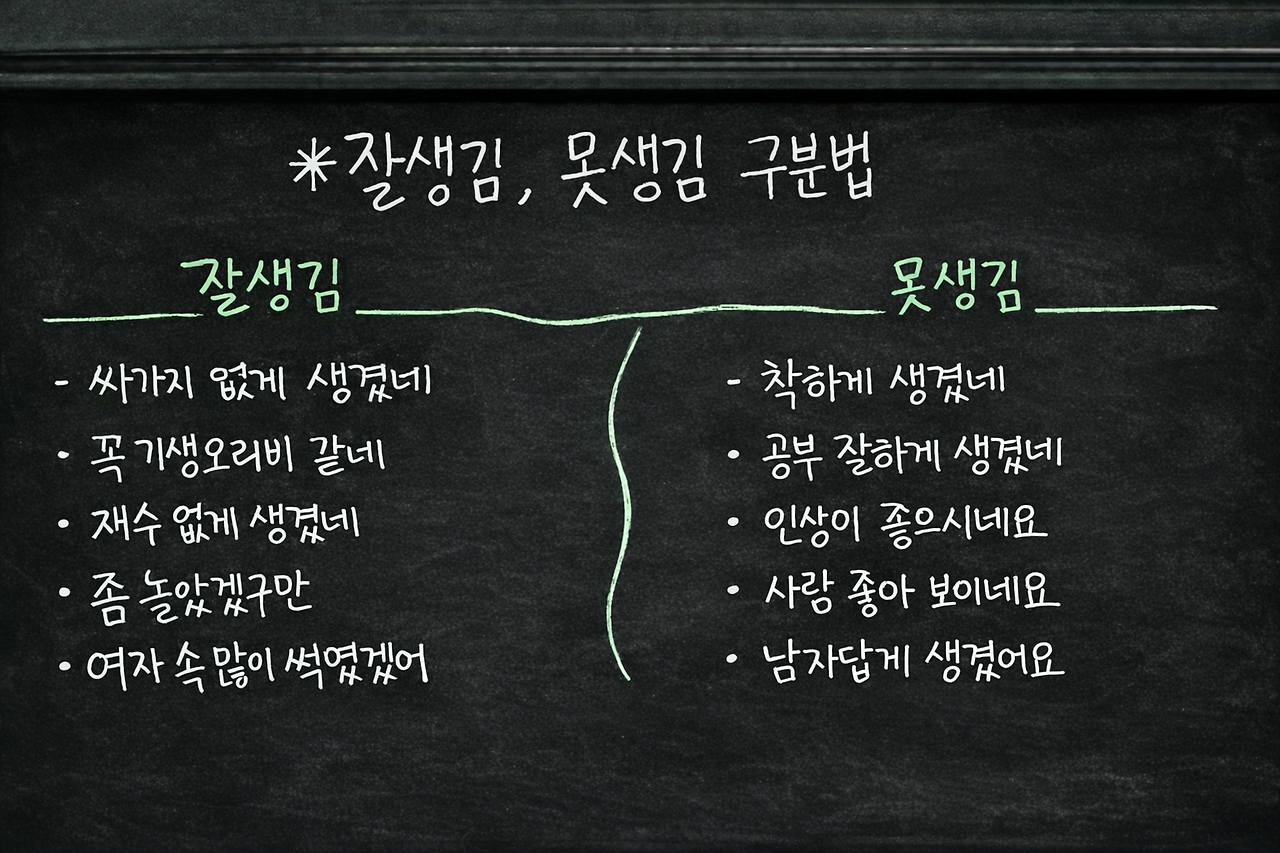 *잘생김, 못생김 구분법
잘생김
- 싸가지 없게 생겼네
• 꼭 기생오리비 같네
• 재수 없게 생겼네
• 좀 놀았겠구만
• 여자 속 많이 썩였겠어
못생김
- 착하게 생겼네
• 공부 잘하게 생겼네
• 인상이 좋으시네요
• 사람 좋아 보이네요
• 남자답게 생겼어요